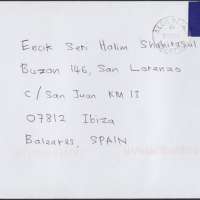 Encik Seri Halim Shahirasul
Buzon 146, San Lorenzo
C/San Juan KM 13
07812 Ibiza
Baleares, SPAIN